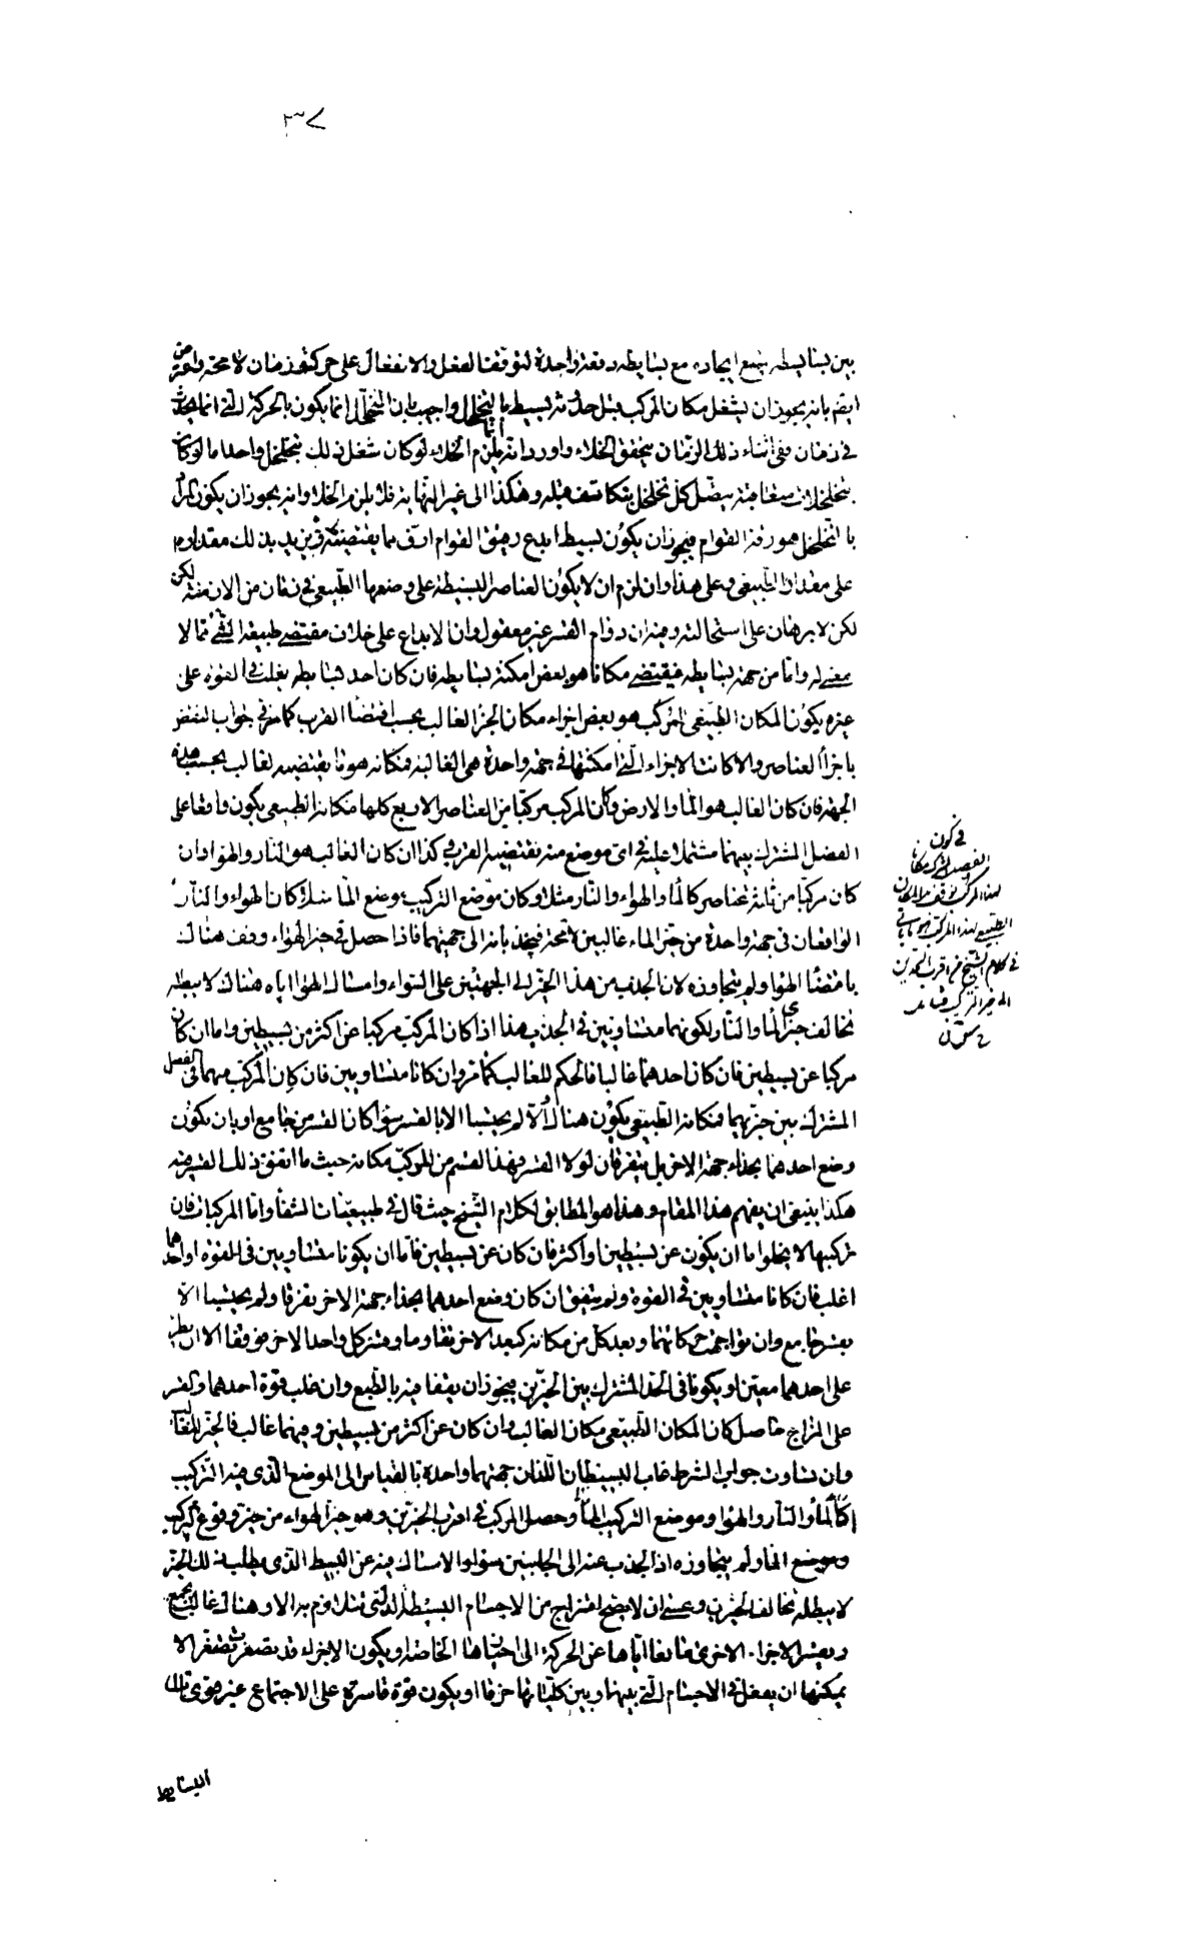 ٣٧
بين بسايطه يمنع ايجاده مع بسايطه دفعة واحدة لتوقف الفعل والانفعال على حركة فى زمان لا محة واعترض
ايضم بانه يجوز ان يشغل مكان المركب قبل حدوثه بسيط بالتخلخل واجيب بان التخلخل انما يكون بالحركة التى انما يحدث
فى زمان ففى اثناء ذلك الزمان يتحقق الخلاء واورد انه انما يلزم الخلاء لو كان شغل ذلك بتخلخل واحد اما لو كان
بتخلخلات متعاقبة يتصل كل تخلخل بتكاثف قبله وهكذا الى غير النهاية فلا يلزم الخلاء وانه يجوز ان يكون المراد
بالتخلخل هو رقة القوام فيجوز ان يكون بسيط ابدع رقيق القوام ارق مما يقتضيه فيزيد بذلك مقداره
على مقداره الطبيعى وعلى هذا وان لزم ان لا يكون العناصر البسيطة على وضعها الطبيعى فى زمان من الازمنة لكن
لكن لا برهان على استحالته وفيه ان دوام القسر غير معقول وان الابداع على خلاف مقتضى طبيعة الشئ مما لا
معنى له واما من جهة بسايطه فيقتضى مكانا هو بعض امكنة بسايطه فان كان احد بسايطه يغلب فى القوة على
غيره يكون المكان الطبيعى للمركب هو بعض اجزاء مكان الجزء الغالب بحسب اقتضاء القرب كما مر فى جواب النقض
باجزاء العناصر والا كانت الاجزاء التى امكنتها فى جهة واحدة هى الغالبة فمكانه هو ما يقتضيه الغالب بحسب هذه
الجهة فان كان الغالب هو الماء والارض وكان المركب مركبا من العناصر الاربع كلها فمكانه الطبيعى يكون واقعا على
الفصل المشترك بينهما مشتملا عليه فى اى موضع منه يقتضيه القرب وكذا ان كان الغالب هو النار والهواء وان
كان مركبا من ثلثة عناصر كالماء والهواء والنار مثلا وكان موضع التركيب موضع الماء مثلا كان الهواء والنار
الواقعان فى جهة واحدة من حيز الماء غالبين لا محة فيجذبانه الى جهتهما فاذا حصل فى حيز الهواء وقف هناك
باقتضاء الهواء ولم يتجاوزه لان الجذب من هذا الحيز الى الجهتين على السواء وامساك الهواء اياه هناك لا يبطله
تخالف جزئى الماء والنار لكونهما متساويين فى الجذب هذا اذا كان المركب مركبا عن اكثر من بسيطين واما ان كان
مركبا عن بسيطين فان كان احدهما غالبا فالحكم للغالب كما مر وان كانا متساويين فان كان المركب منهما فى الفصل
المشترك بين حيزيهما فمكانه الطبيعى يكون هناك والا لم يحتبسا الا بالقسر سواء كان القسر من جامع او بان يكون
وضع احدهما بحذاء جهة الاخر بل يتفرقان لولا القسر فهذا القسم من المركب مكانه حيث ما اتفق ذلك القسر فيه
هكذا ينبغى ان يفهم هذا المقام وهذا هو المطابق لكلام الشيخ حيث قال فى طبيعيات الشفاء واما المركبات فان
تركبها لا يخلوا ما ان يكون عن بسيطين او اكثر فان كان عن بسيطين فاما ان يكونا متساويين فى القوة او احدهما
اغلب فان كانا متساويين فى القوة ولم يتفق ان كان وضع احدهما بحذاء جهة الاخر تفرقا ولم يحتبسا الا
بقسر جامع وان تواجهت حركاتهما وبعد كل من مكانه كبعد الاخر تقاوما وقسر كل واحد الاخر فوقفا الا ان يطرأ
على احدهما معين او يكونا فى الحد المشترك بين الحيزين فيجوز ان يقفا فيه بالطبع وان غلب قوة احدهما والقسر
على المزاج حاصل كان المكان الطبيعى مكان الغالب وان كان عن اكثر من بسيطين وفيهما غالب فالحيز للغالب
وان تساوت جواب الشرط غلب البسيطان اللذان جهتهما واحدة بالقياس الى الموضع الذى فيه التركيب
كالماء والنار والهواء وموضع التركيب الماء وحصل المركب فى اقرب الحيزين وهو حيز الهواء من حيز وقوع التركيب
وموضع الماء ولم يتجاوزه اذ الجذب عنه الى الجانبين سواء والامساك فيه عن البسيط الذى يطلب ذلك الحيز
لا يبطله تخالف الحيزين وعسى ان لا يصح امتزاج من الاجسام البسيطة التى تتقاوم به الا وهناك غالب يجمع
ويقسر الاجزاء الاخرى مانعا اياها عن الحركة الى احيازها الخاصة او يكون الاجزاء قد تصغرت تصغرا لا
يمكنها ان يفعل فى الاجسام التى بينها وبين كلياتها خرقا او يكون قوة قاسرة على الاجتماع غير قوى تلك
البسايط
فى كون
الفصل المشترك مكانا
لهذا المركب
الطبيعى لهذا المركب
فى كلام الشيخ من اقرب الحيزين
الى حيز التركيب